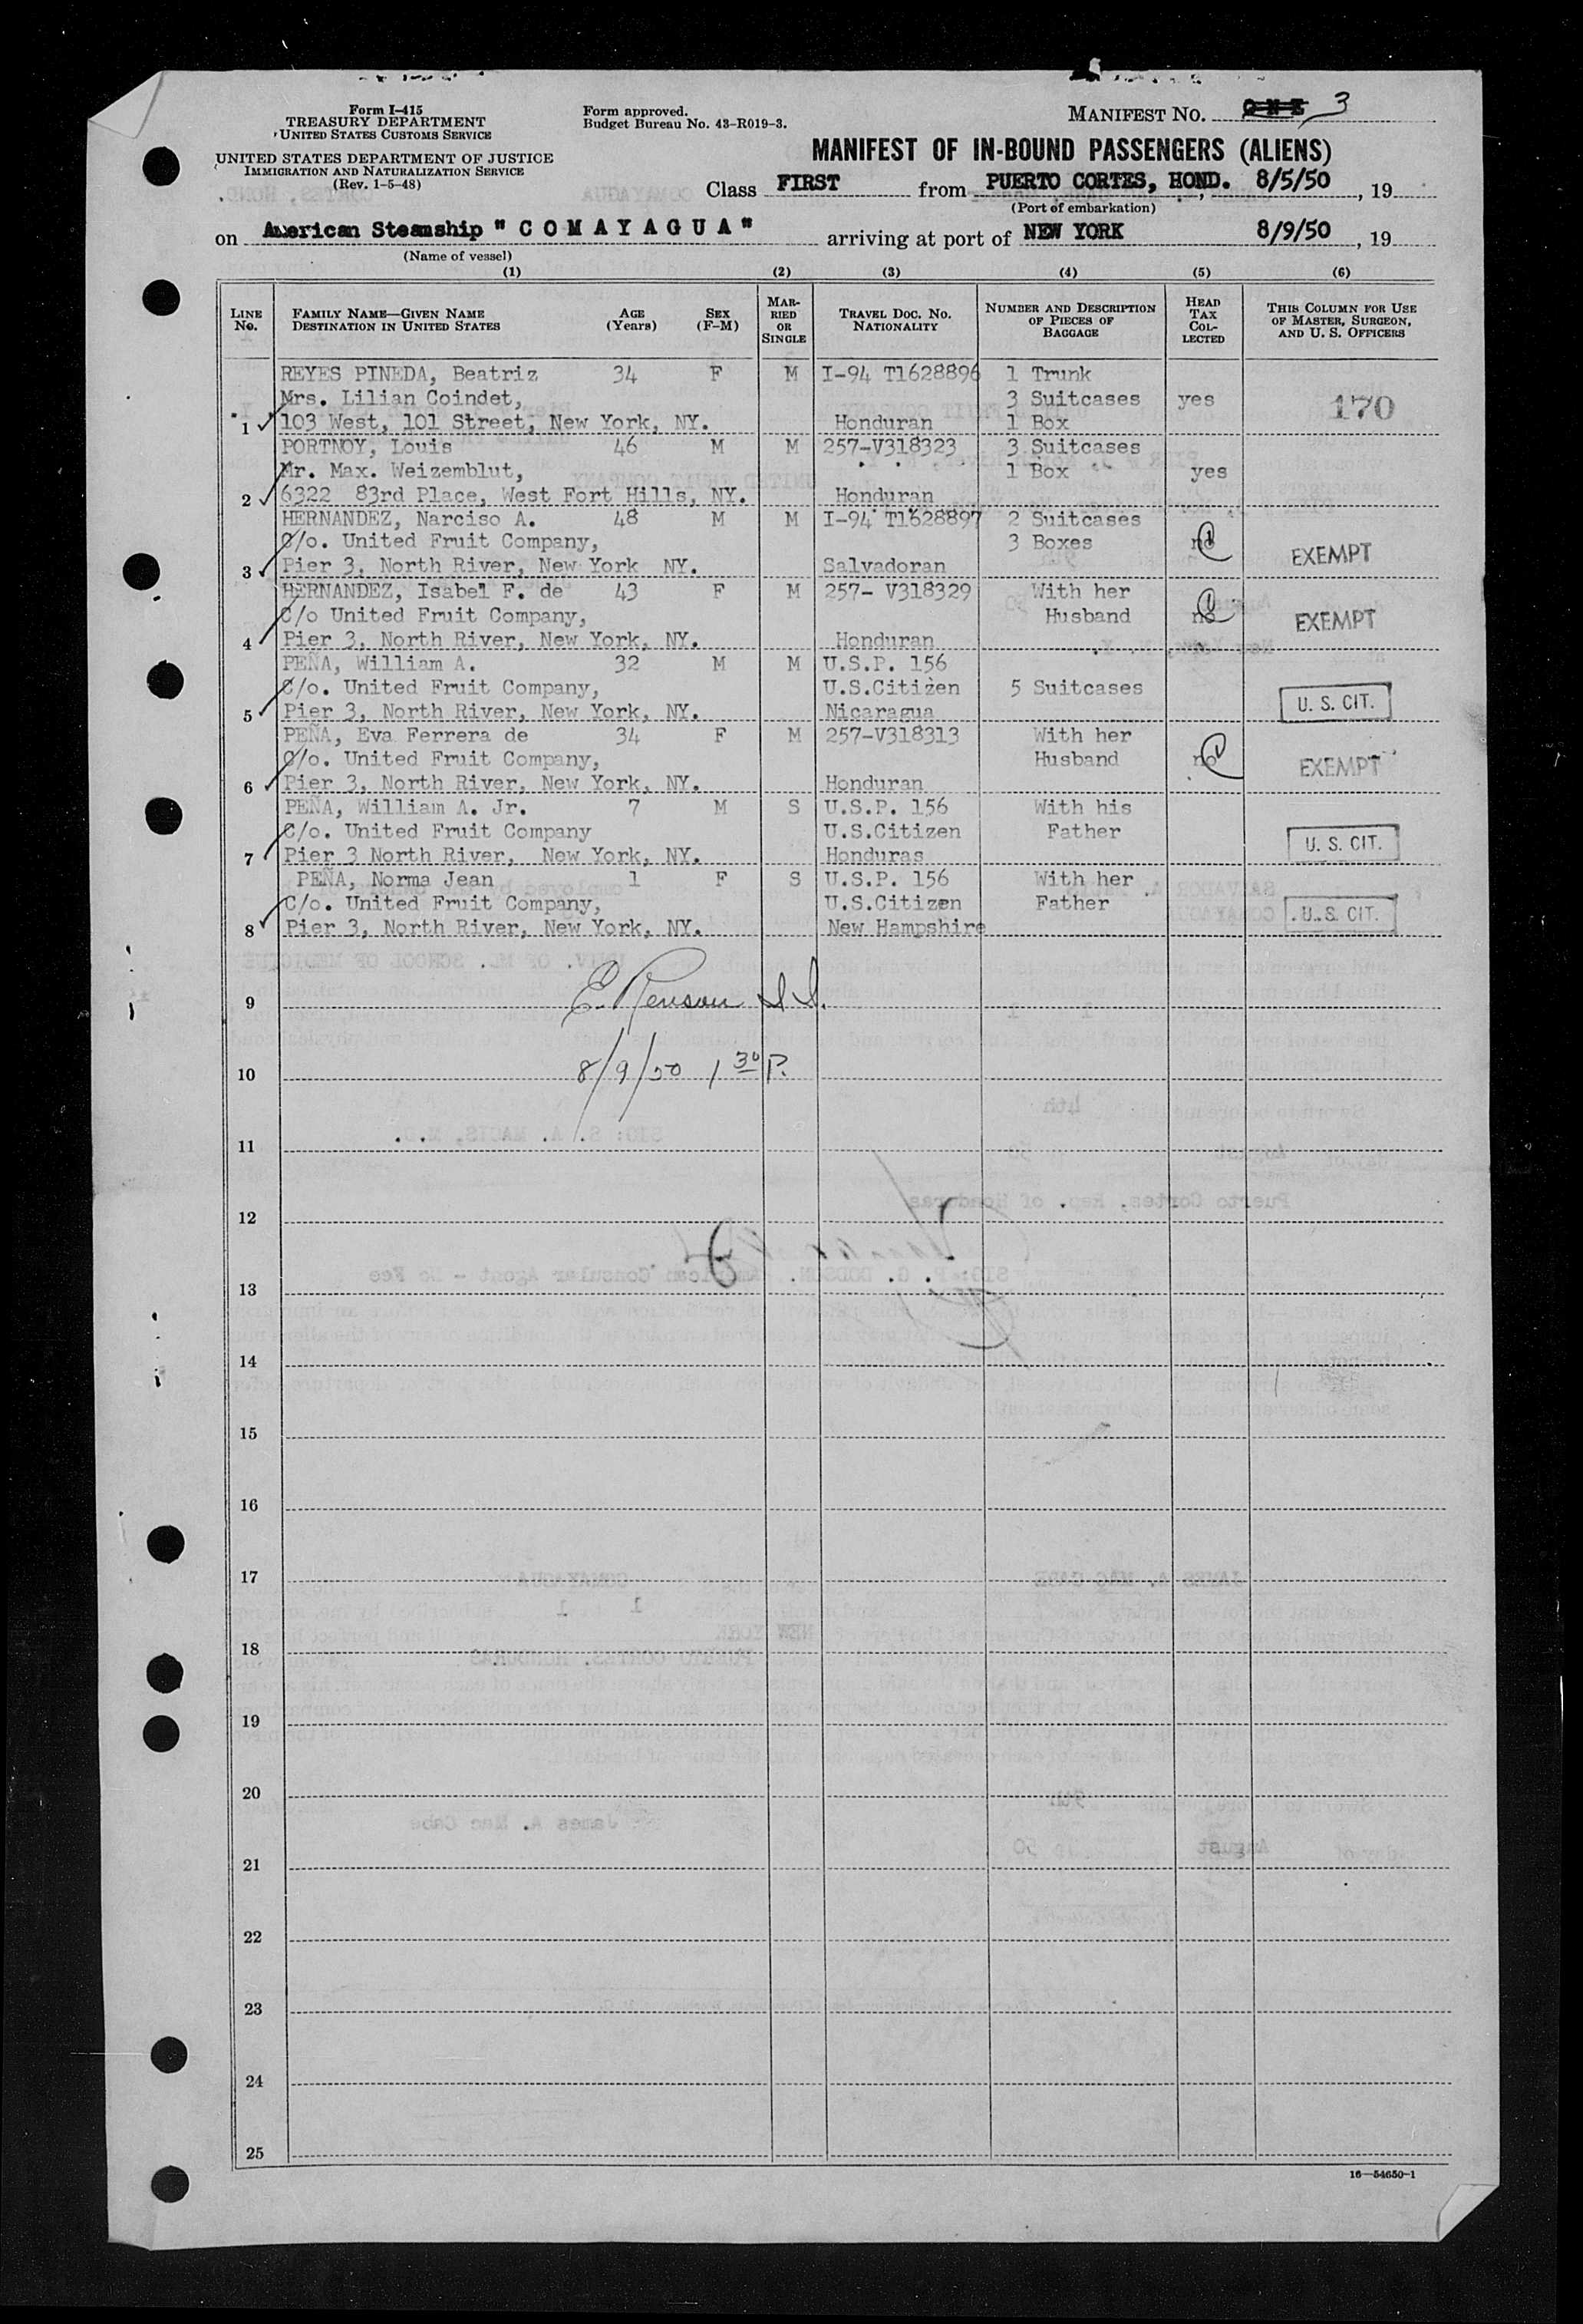 Form I-415
TREASURY DEPARTMENT
UNITED STATES CUSTOMS SERVICE
UNITED STATES DEPARTMENT OF JUSTICE
IMMIGRATION AND NATURALIZATION SERVICE
(Rev. 1-5-48)
Form approved.
Budget Bureau No. 43-R019-3.
MANIFEST NO. ONE 3
MANIFEST OF IN-BOUND PASSENGERS (ALIENS)
Class FIRST from PUERTO CORTES, HOND. , 8/5/50 , 19
(Port of embarkation)
on American Steamship " C O M A Y A G U A " arriving at port of NEW YORK 8/9/50 , 19
(Name of vessel)
(1) (2) (3) (4) (5) (6)
LINE No. FAMILY NAME—GIVEN NAME DESTINATION IN UNITED STATES AGE (Years) SEX (F-M) MARRIED OR SINGLE TRAVEL DOC. NO. NATIONALITY NUMBER AND DESCRIPTION OF PIECES OF BAGGAGE HEAD TAX COLLECTED THIS COLUMN FOR USE OF MASTER, SURGEON, AND U. S. OFFICERS
REYES PINEDA, Beatriz 34 F M I-94 T1628896 1 Trunk
Mrs. Lilian Coindet, 3 Suitcases yes 170
1 103 West, 101 Street, New York, NY. Honduran 1 Box
PORTNOY, Louis 46 M M 257-V318323 3 Suitcases
Mr. Max. Weizemblut, 1 Box yes
2 6322 83rd Place, West Fort Hills, NY. Honduran
HERNANDEZ, Narciso A. 48 M M I-94 T1628897 2 Suitcases
C/o. United Fruit Company, 3 Boxes no EXEMPT
3 Pier 3, North River, New York NY. Salvadoran
HERNANDEZ, Isabel F. de 43 F M 257- V318329 With her
C/o United Fruit Company, Husband no EXEMPT
4 Pier 3, North River, New York, NY. Honduran
PEÑA, William A. 32 M M U.S.P. 156
C/o. United Fruit Company, U.S.Citizen 5 Suitcases U. S. CIT.
5 Pier 3, North River, New York, NY. Nicaragua
PEÑA, Eva Ferrera de 34 F M 257-V318313 With her
C/o. United Fruit Company, Husband no EXEMPT
6 Pier 3, North River, New York, NY. Honduran
PEÑA, William A. Jr. 7 M S U.S.P. 156 With his
C/o. United Fruit Company U.S.Citizen Father U. S. CIT.
7 Pier 3 North River, New York, NY. Honduras
PEÑA, Norma Jean 1 F S U.S.P. 156 With her
C/o. United Fruit Company, U.S.Citizen Father U. S. CIT.
8 Pier 3, North River, New York, NY. New Hampshire
9 E.
10 8/9/50 1 30 P.
11
12
13
14
15
16
17
18
19
20
21
22
23
24
25
16—54650-1